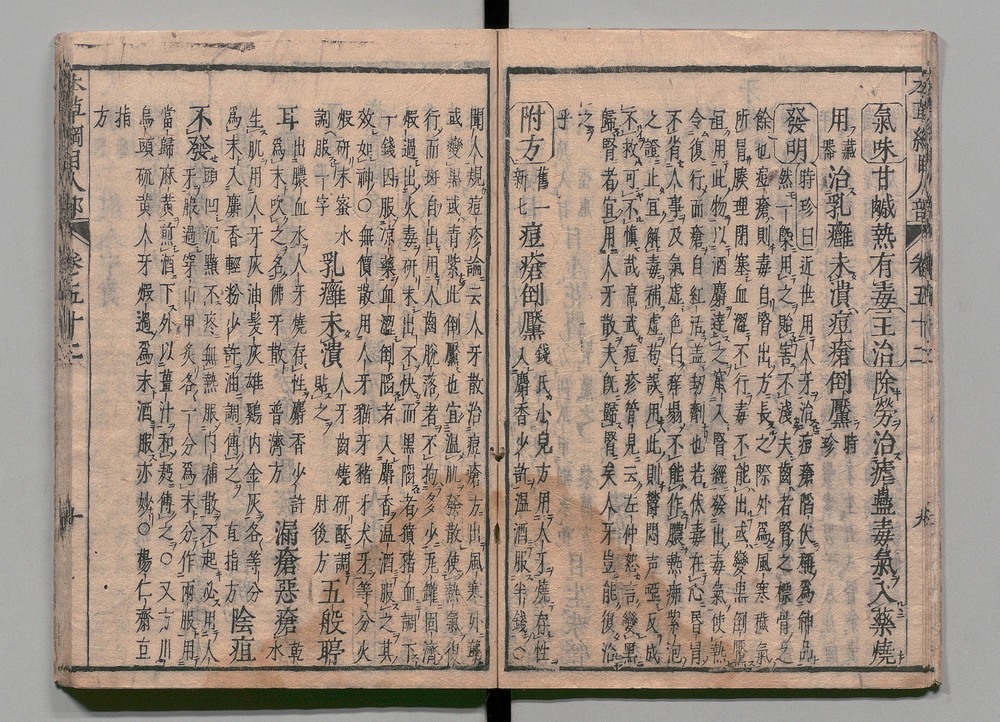 氣味甘鹹熱有毒主治除勞治瘧蠱毒氣入藥燒
用藏器治乳癰未潰痘瘡倒黶時珍
發明時珍曰近世用人牙治痘瘡陷伏稱為神品
然一槩用之貽害不淺夫齒者腎之標骨之
餘也痘瘡則毒自腎出方長之際外為風寒穢氣
所冒腠理閉塞血澀不行毒不能出或變黒倒黶
宜用此物以酒麝達之竄入腎經發出毒氣使熱
令復行而瘡自紅活蓋劫劑也若伏毒在心昏冒
不省人事及氣虛色白痒塌不能作膿熱沸紫泡
之證止宜解毒補虛苟誤用此則鬱悶声啞反成
不救可不慎哉高武痘疹管見云左仲恕言變黒
歸腎者宜用人牙散夫既歸腎矣人牙豈能復治
之乎
附方舊一新七痘瘡倒黶錢氏小兒方用人牙燒存性入麝香少許温酒服半錢○
聞人規痘疹論云人牙散治痘瘡方出風寒外襲
或變黒或青紫此倒黶也宜温肌發散使熱氣復
行而斑自出用人齒脱落者不拘多少瓦罐固濟
煆過出火毒研末出不快而黒陷者猗豬血調下
一錢因服涼藥血澀倒陷者入麝香温酒服之其
效如神○無價散用人牙猫牙豬牙犬牙等分火
煆研末蜜水調服一字乳癰未潰人牙齒燒研酥調貼之肘後方五般聤
耳出膿血水人牙燒存性麝香少許為末吹之名佛牙散普濟方漏瘡惡瘡乾水
生肌用人牙灰油髮灰雄鷄内金灰各等分
為末入麝香輕粉少許油調傅之直指方陰疽
不發頭凹沉黯不疼無熱服内補散不起必用人
牙煆過穿山甲炙各一分為末分作兩服用
當歸麻黄煎酒下外以薑汁和麪傅之○又方川
烏頭硫黄人牙煆過為末酒服亦妙○楊仁齋直
指方
本草綱目人部
卷五十二
十